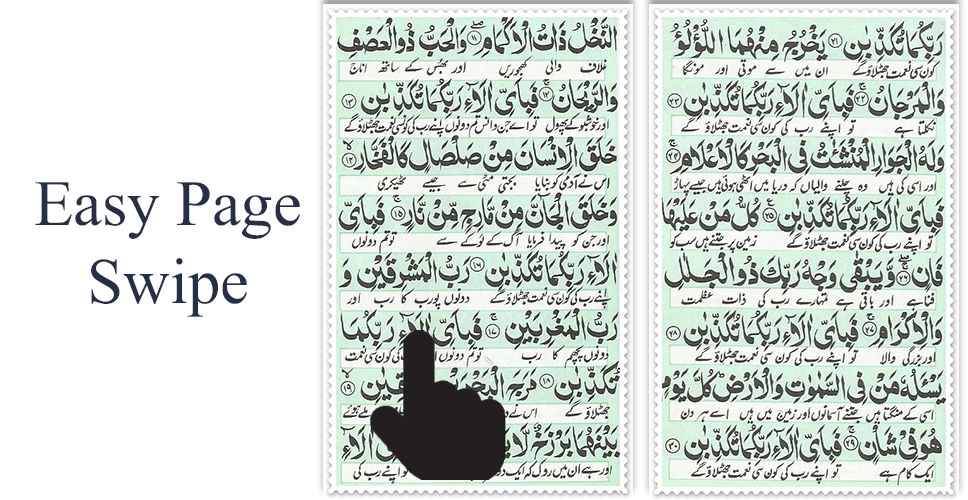 Easy Page
Swipe
النَّخْلُ ذَاتُ الْاَكْمَامِ ۱۱ وَالْحَبُّ ذُو الْعَصْفِ
غلاف والی کھجوریں اور بھُس کے ساتھ اناج
وَالرَّيْحَانُ ۱۲ فَبِاَىِّ اٰلَآءِ رَبِّكُمَا تُكَذِّبٰنِ ۱۳
اور خوشبو کے پھول تو اے جن و انس تم دونوں اپنے رب کی کونسی نعمت جھٹلاؤ گے
خَلَقَ الْاِنْسَانَ مِنْ صَلْصَالٍ كَالْفَخَّارِ ۱۴
اس نے آدمی کو بنایا بجتی مٹی سے جیسے ٹھیکری
وَخَلَقَ الْجَآنَّ مِنْ مَّارِجٍ مِّنْ نَّارٍ ۱۵ فَبِاَىِّ
اور جن کو پیدا فرمایا آگ کے لوکے سے تو تم دونوں
اٰلَآءِ رَبِّكُمَا تُكَذِّبٰنِ ۱۶ رَبُّ الْمَشْرِقَيْنِ وَ
اپنے رب کی کون سی نعمت جھٹلاؤ گے دونوں پورب کا رب اور
رَبُّ الْمَغْرِبَيْنِ ۱۷ فَبِاَىِّ اٰلَآءِ رَبِّكُمَا
دونوں پچھم کا رب تو تم دونوں کی کون سی نعمت
تُكَذِّبٰنِ ۱۸ مَرَجَ الْبَحْرَ ۱۹
جھٹلاؤ گے اس نے
بَيْنَهُمَا بَرْزَخٌ لَّا اٰلَآءِ
اور ہے ان میں روک کہ ایک تو اپنے رب کی
رَبِّكُمَا تُكَذِّبٰنِ ۲۱ يَخْرُجُ مِنْهُمَا اللُّؤْلُؤُ
کون سی نعمت جھٹلاؤ گے ان میں سے موتی اور مونگا
وَالْمَرْجَانُ ۲۲ فَبِاَىِّ اٰلَآءِ رَبِّكُمَا تُكَذِّبٰنِ ۲۳
نکلتا ہے تو اپنے رب کی کون سی نعمت جھٹلاؤ گے
وَلَهُ الْجَوَارِ الْمُنْشَئٰتُ فِى الْبَحْرِ كَالْاَعْلَامِ ۲۴
اور اسی کی ہیں وہ چلنے والیاں کہ دریا میں اٹھی ہوئی ہیں جیسے پہاڑ
فَبِاَىِّ اٰلَآءِ رَبِّكُمَا تُكَذِّبٰنِ ۲۵ كُلُّ مَنْ عَلَيْهَا
تو اپنے رب کی کون سی نعمت جھٹلاؤ گے زمین پر جتنے ہیں سب کو
فَانٍ ۲۶ وَّيَبْقٰى وَجْهُ رَبِّكَ ذُو الْجَلٰلِ
فنا ہے اور باقی ہے تمہارے رب کی ذات عظمت
وَالْاِكْرَامِ ۲۷ فَبِاَىِّ اٰلَآءِ رَبِّكُمَا تُكَذِّبٰنِ ۲۸
اور بزرگی والا تو اپنے رب کی کون سی نعمت جھٹلاؤ گے
يَسْئَلُهٗ مَنْ فِى السَّمٰوٰتِ وَالْاَرْضِ كُلَّ يَوْمٍ
اسی کے منگتا ہیں جتنے آسمانوں اور زمین میں ہیں اسے ہر دن
هُوَ فِىْ شَاْنٍ ۲۹ فَبِاَىِّ اٰلَآءِ رَبِّكُمَا تُكَذِّبٰنِ ۳۰
ایک کام ہے تو اپنے رب کی کون سی نعمت جھٹلاؤ گے